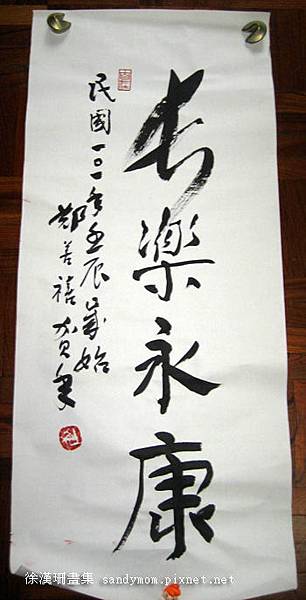 長樂永康
民國一〇一年壬辰歲始
鄭善禧賀年
徐漢珊畫集 sandymom.pixnet.net